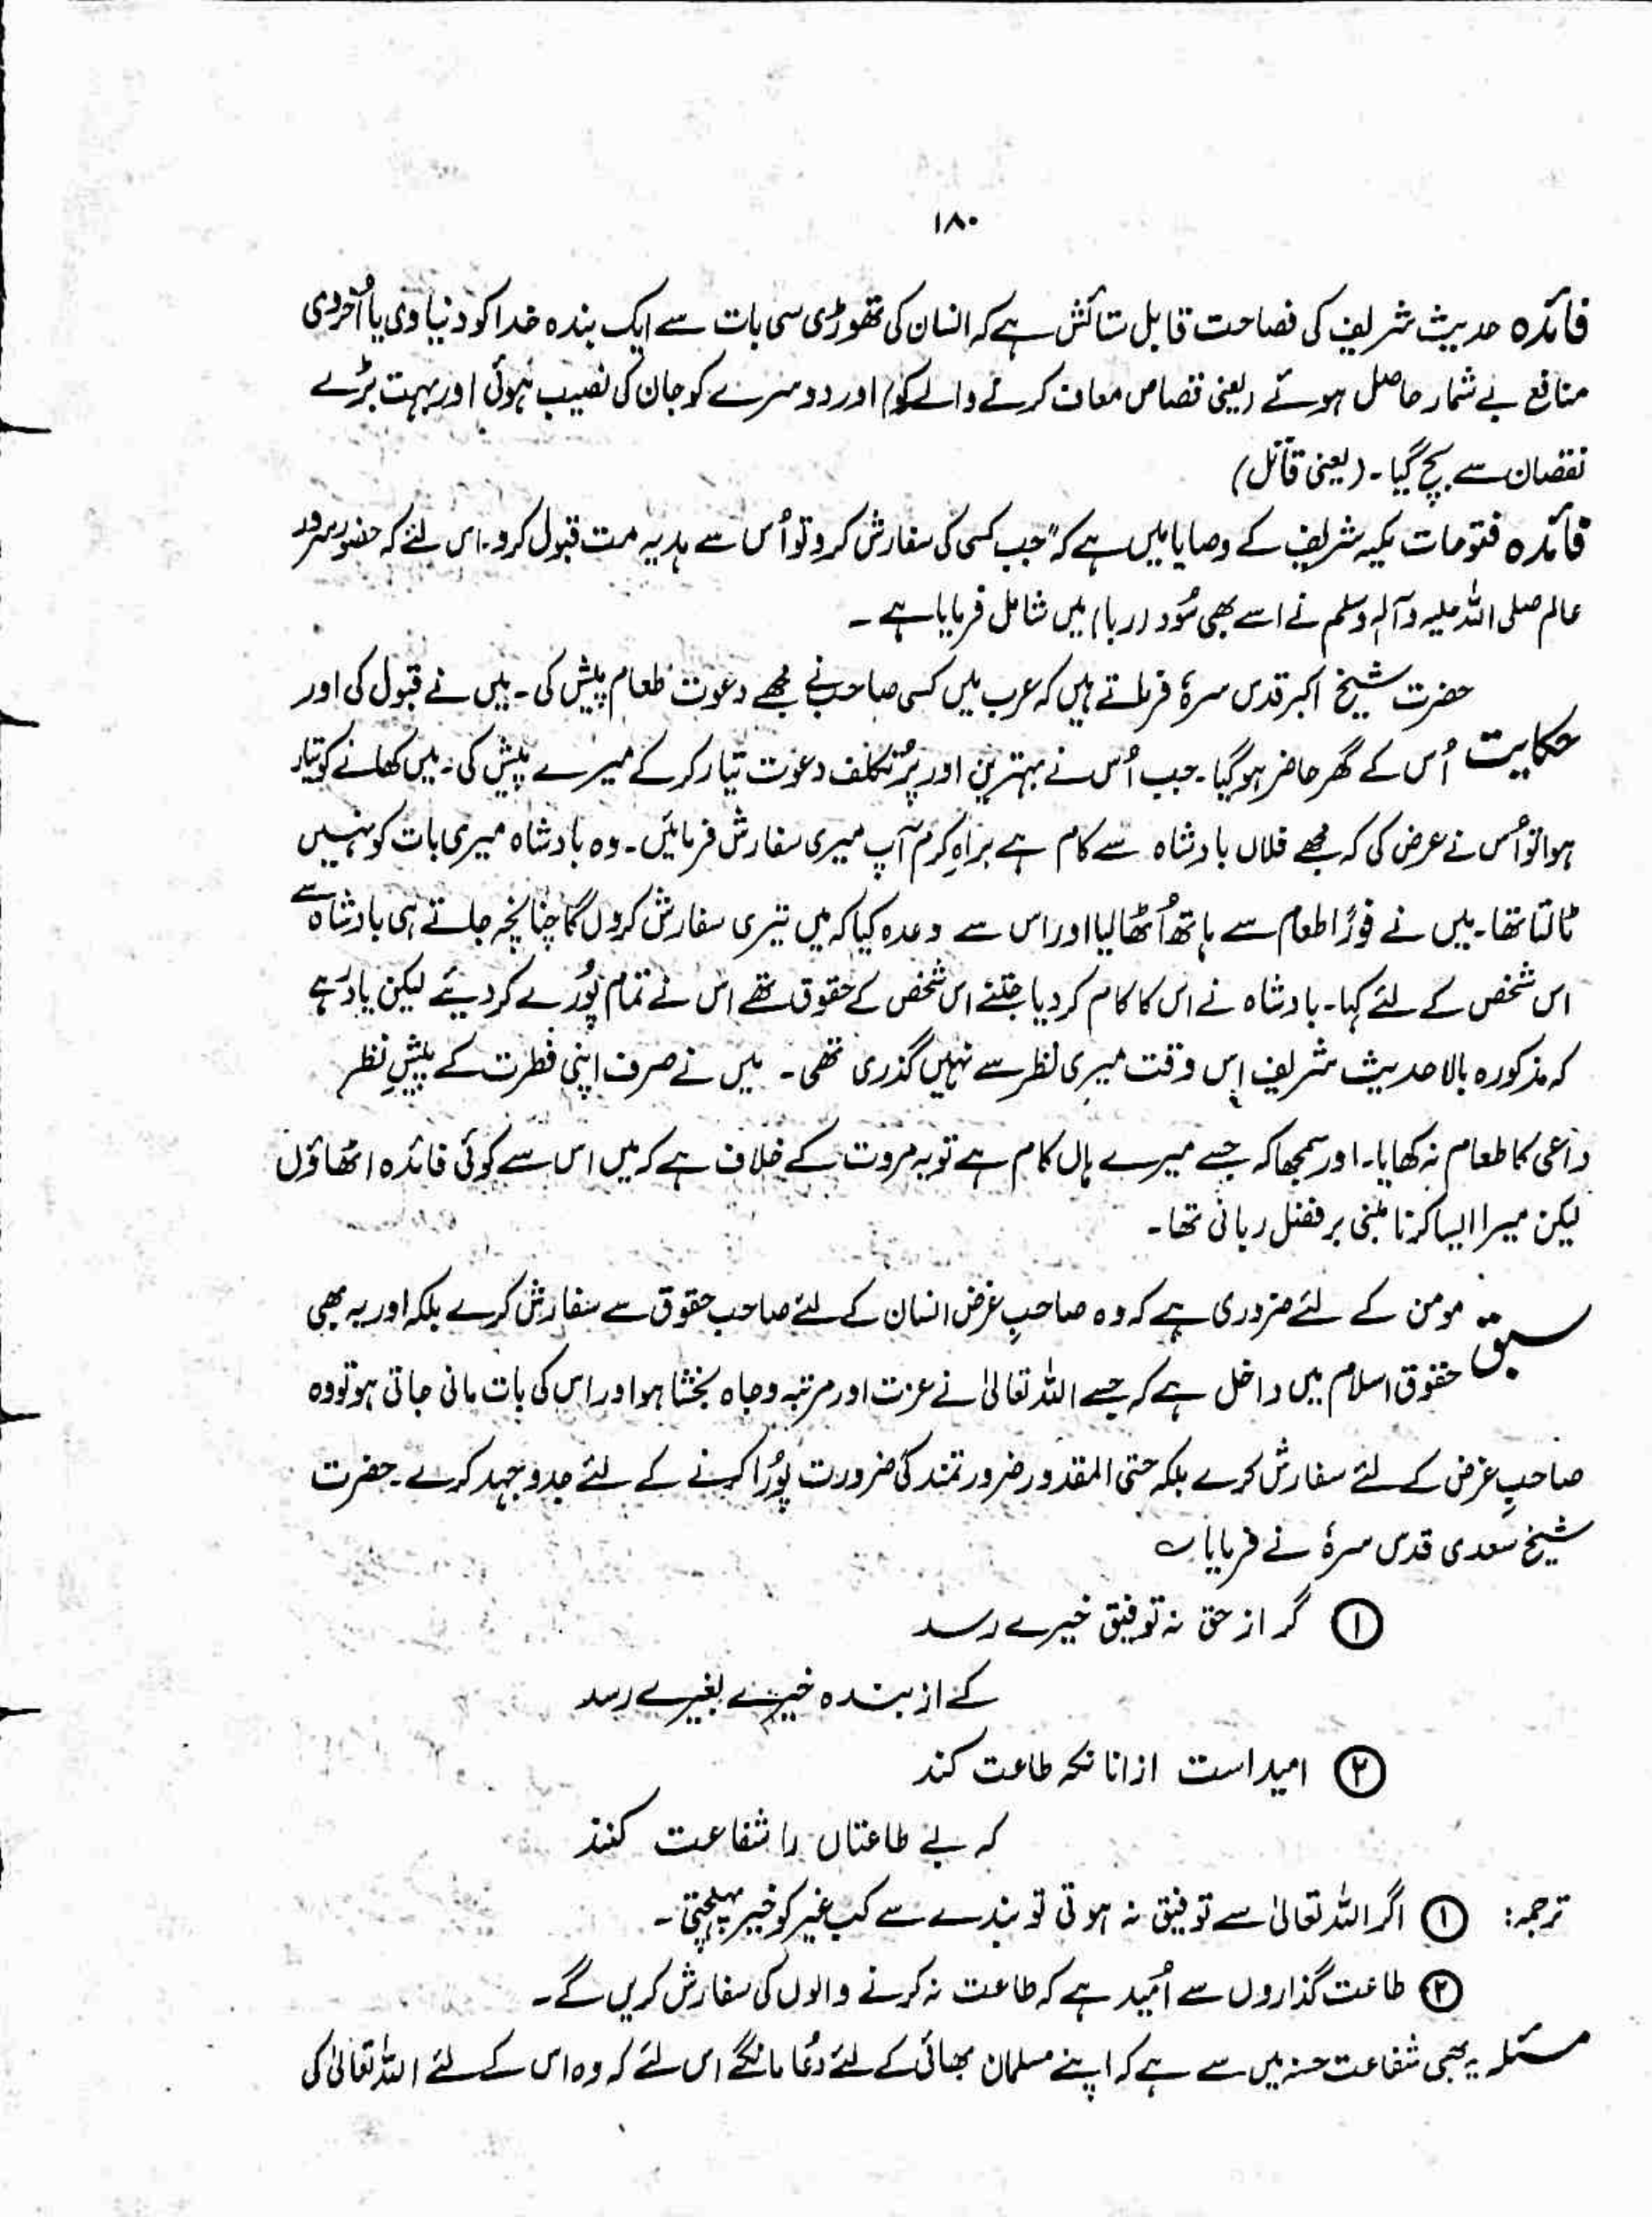 ۱۸۰
فائدہ حدیث شریف کی فصاحت قابل ستائش ہے کہ انسان کی تھوڑی سی بات سے ایک بندہ خدا کو دنیاوی یا اُخروی
منافع بے شمار حاصل ہوئے (یعنی قصاص معاف کرنے والے کو) اور دوسرے کو جان کی نصیب ہوئی اور بہت بڑے
نقصان سے بچ گیا۔ (یعنی قاتل)
فائدہ فتوحات مکیہ شریف کے وصایا میں ہے کہ "جب کسی کی سفارش کرو تو اُس سے ہدیہ مت قبول کرو۔ اس لئے کہ حضور سرور
عالم صلی اللہ علیہ وآلہٖ وسلم نے اسے بھی سُود (ربا) میں شامل فرمایا ہے ۔
حضرت شیخ اکبر قدس سرہٗ فرماتے ہیں کہ عرب میں کسی صاحب نے مجھے دعوت طعام پیش کی۔ میں نے قبول کی اور
حکایت اُس کے گھر حاضر ہو گیا۔ جب اُس نے بہترین اور پُرتکلف دعوت تیار کر کے میرے پیش کی۔ میں کھانے کو تیار
ہوا تو اُس نے عرض کی کہ مجھے فلاں بادشاہ سے کام ہے براہِ کرم آپ میری سفارش فرمائیں۔ وہ بادشاہ میری بات کو نہیں
ٹالتا تھا۔ میں نے فورًا طعام سے ہاتھ اُٹھا لیا اور اس سے وعدہ کیا کہ میں تیری سفارش کروں گا چنانچہ جاتے ہی بادشاہ سے
اس شخص کے لئے کہا۔ بادشاہ نے اس کا کام کر دیا جتنے اس شخص کے حقوق تھے اس نے تمام پُورے کر دیئے لیکن یاد رہے
کہ مذکورہ بالا حدیث شریف اس وقت میری نظر سے نہیں گذری تھی۔ میں نے صرف اپنی فطرت کے پیشِ نظر
داعی کا طعام نہ کھایا۔ اور سمجھا کہ جسے میرے ہاں کام ہے تو یہ مروت کے خلاف ہے کہ میں اس سے کوئی فائدہ اٹھاؤں
لیکن میرا ایسا کرنا مبنی بر فضل ربانی تھا۔
سبق مومن کے لئے ضروری ہے کہ وہ صاحبِ غرض انسان کے لئے صاحب حقوق سے سفارش کرے بلکہ اور یہ بھی
حقوق اسلام میں داخل ہے کہ جسے اللہ تعالیٰ نے عزت اور مرتبہ وجاہ بخشا ہو اور اس کی بات مانی جاتی ہو تو وہ
صاحبِ غرض کے لئے سفارش کرے بلکہ حتی المقدور ضرورتمند کی ضرورت پُورا کرنے کے لئے جدوجہد کرے۔ حضرت
شیخ سعدی قدس سرہٗ نے فرمایا ؎
① گر از حق نہ توفیق خیرے رسد
کے از بندہ خیرے بغیرے رسد
② امید است ازانا نکہ طاعت کند
کہ بے طاعتاں را شفاعت کنند
ترجمہ: ① اگر اللہ تعالیٰ سے توفیق نہ ہوتی تو بندے سے کب غیر کو خیر پہنچتی۔
② طاعت گذاروں سے اُمید ہے کہ طاعت نہ کرنے والوں کی سفارش کریں گے۔
مسئلہ یہ بھی شفاعت حسنہ میں سے ہے کہ اپنے مسلمان بھائی کے لئے دُعا مانگے اس لئے کہ وہ اس کے لئے اللہ تعالیٰ کی